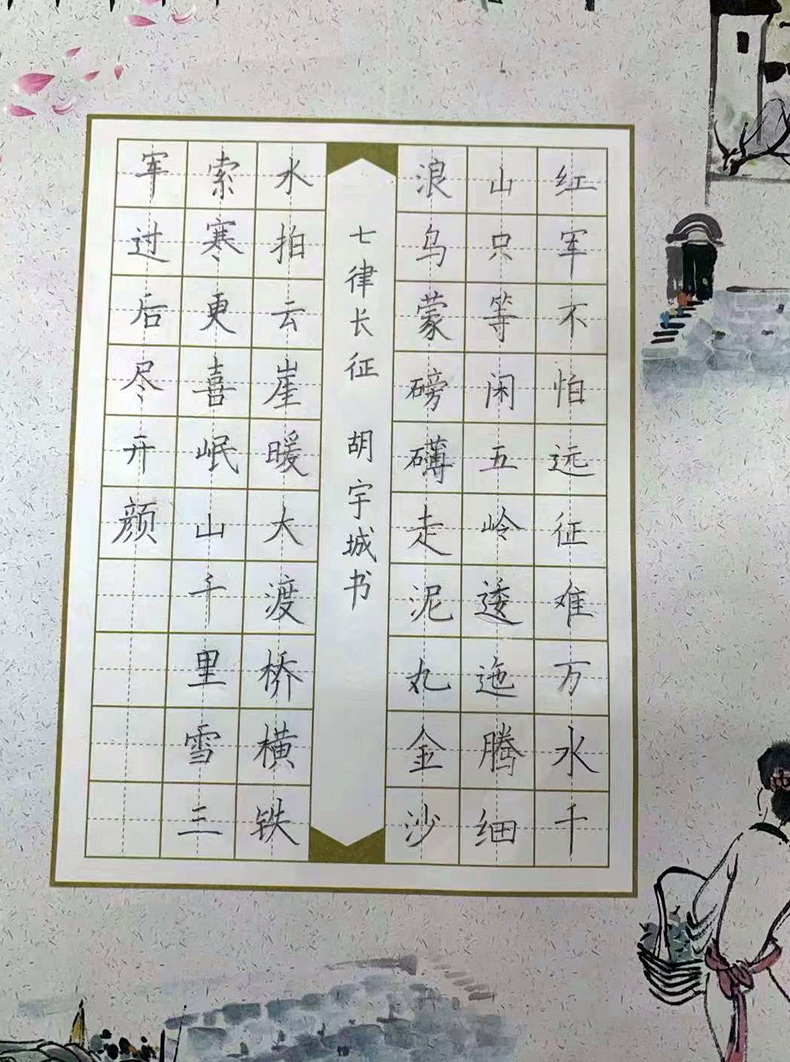 红军不怕远征难万水千
山只等闲五岭逶迤腾细
浪乌蒙磅礴走泥丸金沙
七律长征 胡宇城书
水拍云崖暖大渡桥横铁
索寒更喜岷山千里雪三
军过后尽开颜